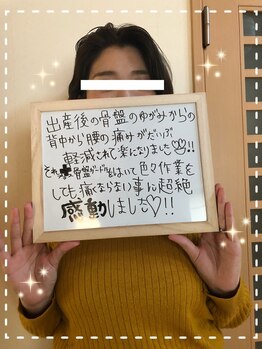 出産後の骨盤のゆがみからの
背中から腰の痛みがだいぶ
軽減されて楽になりました♡!!
それに骨盤ガードルはいて色々作業を
しても痛くならない事に超絶
感動しました♡!!